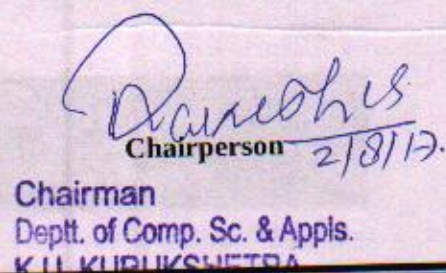 Chairperson
2/8/17.
Chairman
Deptt. of Comp. Sc. & Appls.
K.U. KURUKSHETRA